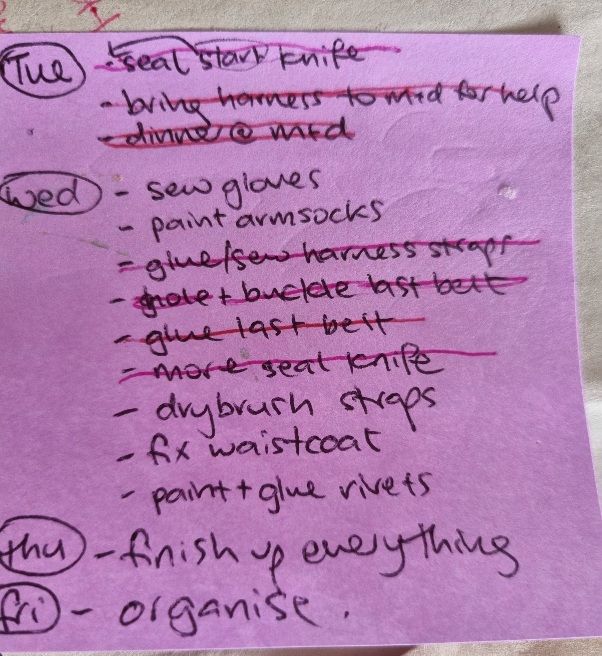 Tue - seal start knife
- bring harness to m+d for help
- dinner @ m+d
wed - sew gloves
- paint armsocks
- glue/sew harness straps
- hole + buckle last belt
- glue last belt
- more seal knife
- drybrush straps
- fix waistcoat
- paint + glue rivets
thu - finish up everything
fri - organise.